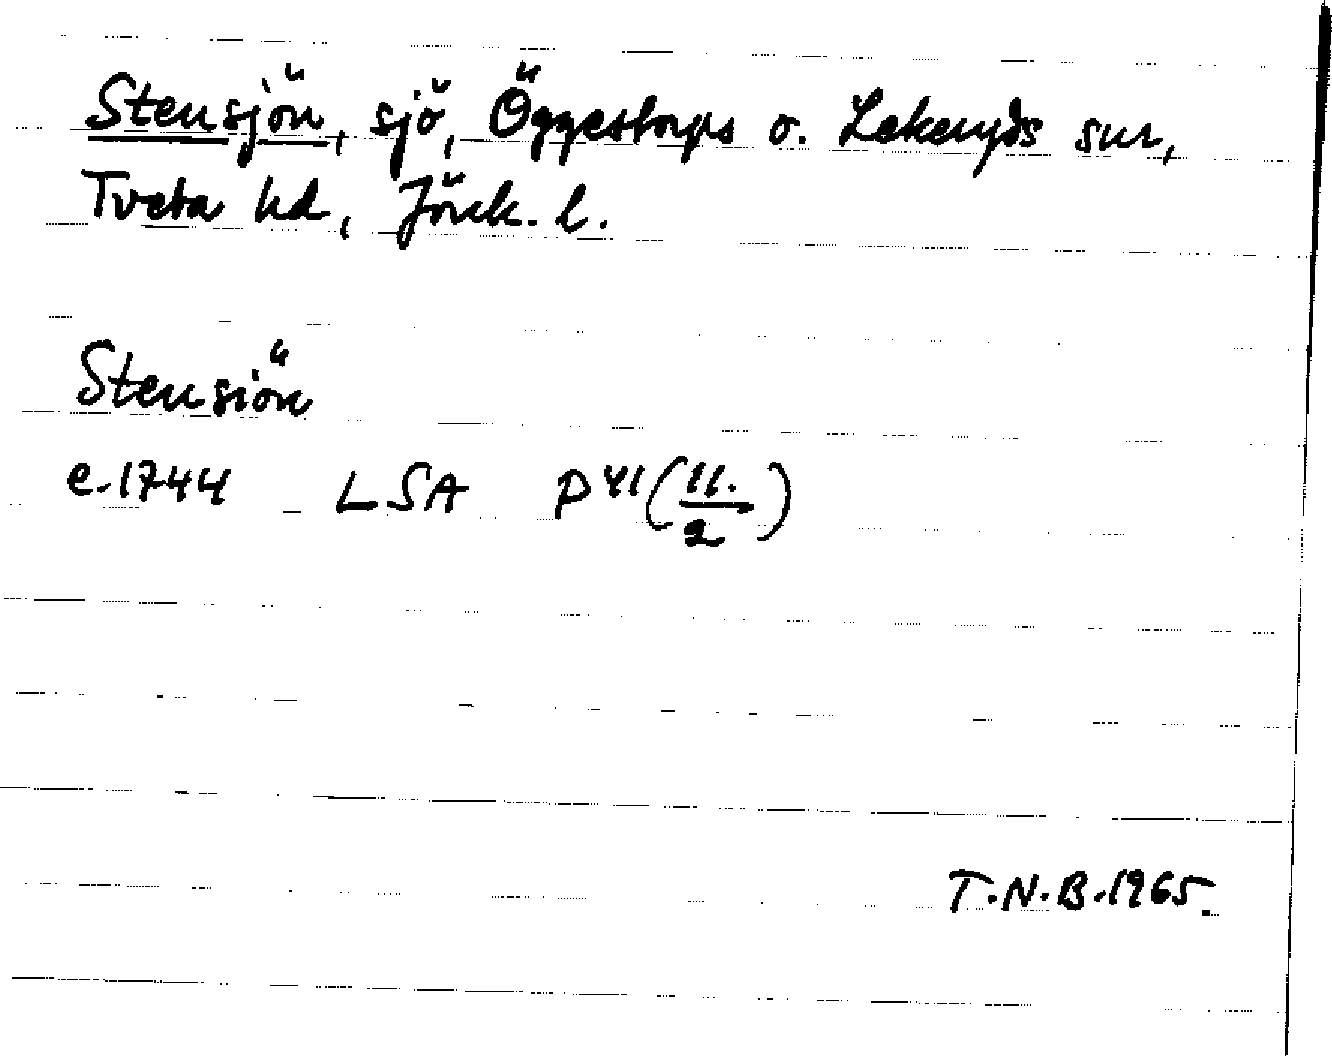 Stensjön, sjö, Öggestorps o. Lekeryds snr,
Tveta hd, Jönk. l.
Stensiön
e. 1744 LSA P41 (11./2)
T.N.B. 1965.